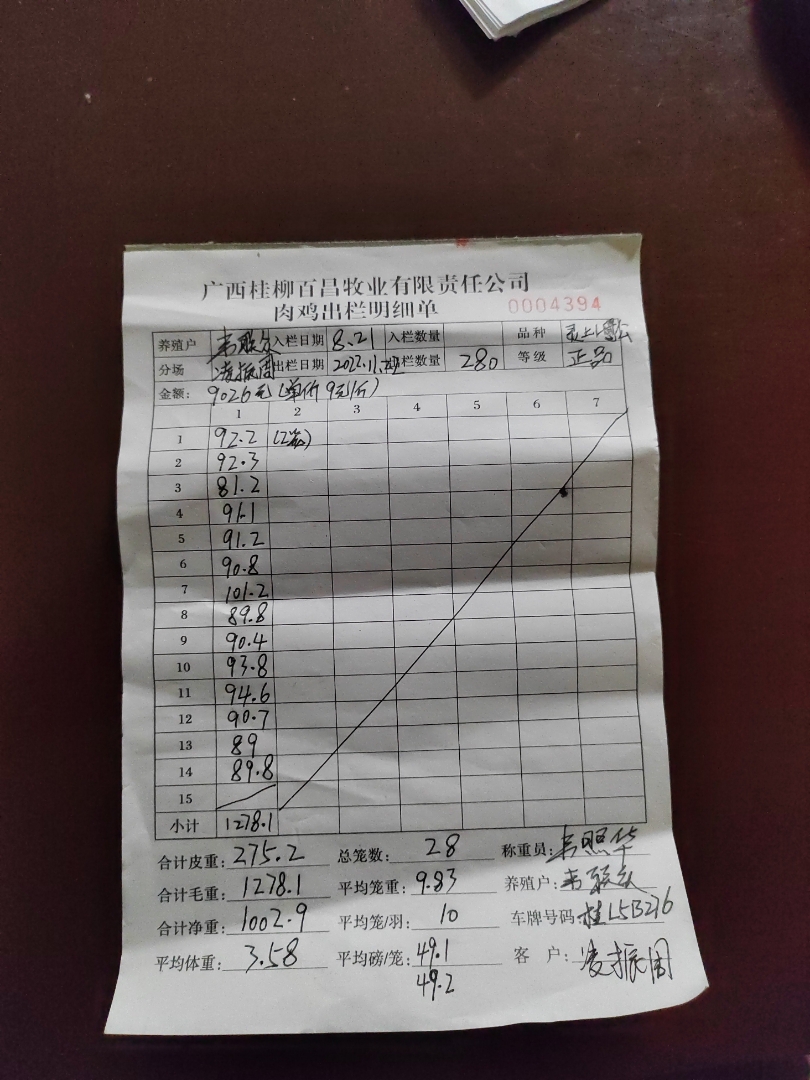 广西桂柳百昌牧业有限责任公司
肉鸡出栏明细单 0004394
养殖户 韦联众 入栏日期 8.21 入栏数量 品种
分场 凌振周 出栏日期 2022.11. 出栏数量 280 等级 正品
金额: 9026元(单价9元/斤)
1 2 3 4 5 6 7
1 92.2 (2笼)
2 92.3
3 81.2
4 91.1
5 91.2
6 90.8
7 101.2
8 89.8
9 90.4
10 93.8
11 94.6
12 90.7
13 89
14 89.8
15
小计 1278.1
合计皮重: 275.2 总笼数: 28 称重员: 韦照华
合计毛重: 1278.1 平均笼重: 9.83 养殖户: 韦联众
合计净重: 1002.9 平均笼/羽: 10 车牌号码 桂L5B276
平均体重: 3.58 平均磅/笼: 49.1 客户: 凌振周
49.2